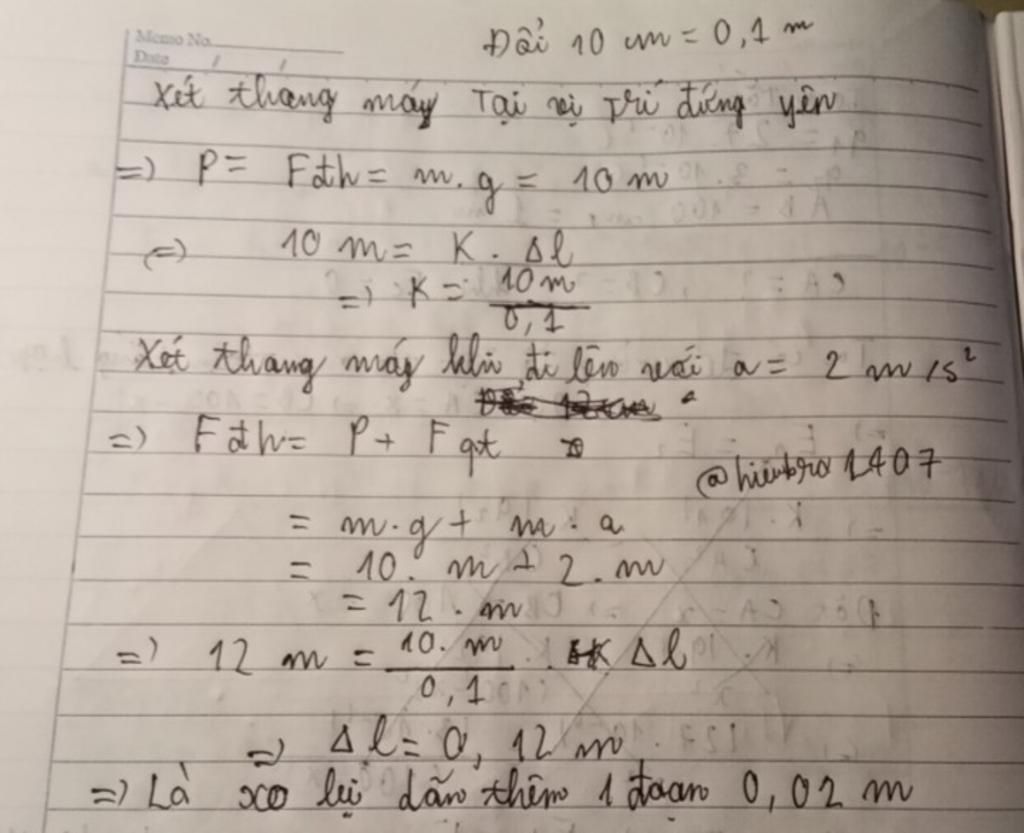 Memo No.
Date / /
Đổi 10 cm = 0,1 m
Xét thang máy Tại vị Trí đứng yên
=> P = Fđh = m.g = 10 m
<=> 10 m = K . Δl
=> K = 10 m / 0,1
Xét thang máy khi đi lên với a = 2 m/s²
=> Fđh = P + Fqt
@hieubra1407
= m.g + m . a
= 10 . m + 2 . m
= 12 . m
=> 12 m = 10 . m / 0,1 . Δl
=> Δl = 0,12 m
=> Là xo lại dãn thêm 1 đoạn 0,02 m